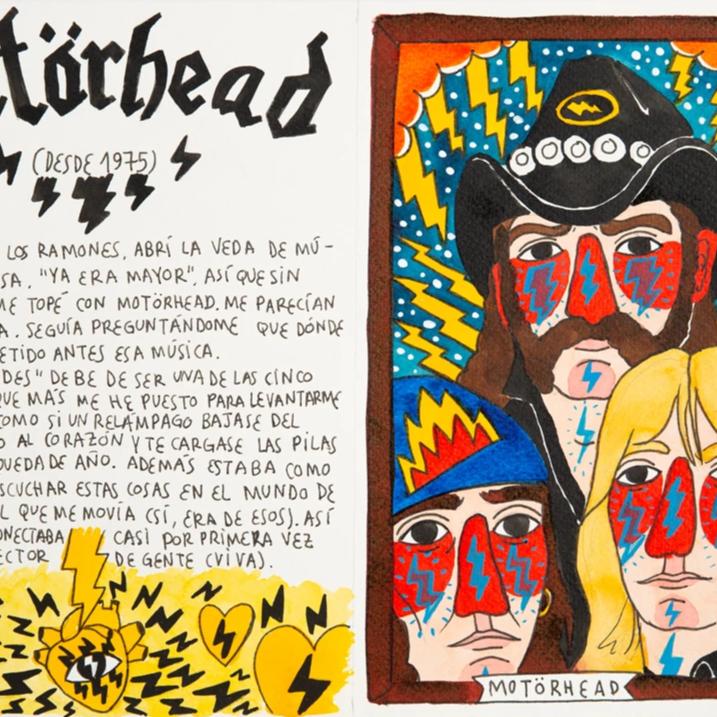 törhead
(DESDE 1975)
LOS RAMONES, ABRÍ LA VEDA DE MÚ-
SA. "YA ERA MAYOR", ASÍ QUE SIN
ME TOPÉ CON MOTÖRHEAD. ME PARECÍAN
A. SEGUÍA PREGUNTÁNDOME QUE DÓNDE
ETIDO ANTES ESA MÚSICA.
DES" DEBE DE SER UNA DE LAS CINCO
QUE MÁS ME HE PUESTO PARA LEVANTARME
COMO SI UN RELÁMPAGO BAJASE DEL
O AL CORAZÓN Y TE CARGASE LAS PILAS
QUEDA DE AÑO. ADEMÁS ESTABA COMO
SCUCHAR ESTAS COSAS EN EL MUNDO DE
L QUE ME MOVÍA (SÍ, ERA DE ESOS). ASÍ
ONECTABA CASI POR PRIMERA VEZ
ECTOR DE GENTE (VIVA).
MOTÖRHEAD